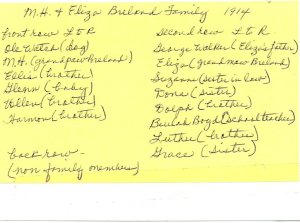 M.H. & Eliza Breland Family 1914
front row L to R
Ole Watch (dog)
M.H. (grandpaw Breland)
Ellis (brother)
Glenn (baby)
Vellon (brother)
Harmon (brother)
back row -
(non family members)
second row L to R.
George Walker (Eliza's father)
Eliza (grandmaw Breland)
Suzanne (sister in law)
Dona (sister)
Dolph (brother)
Beulah Boyd (School teacher)
Luther (brother)
Grace (sister)